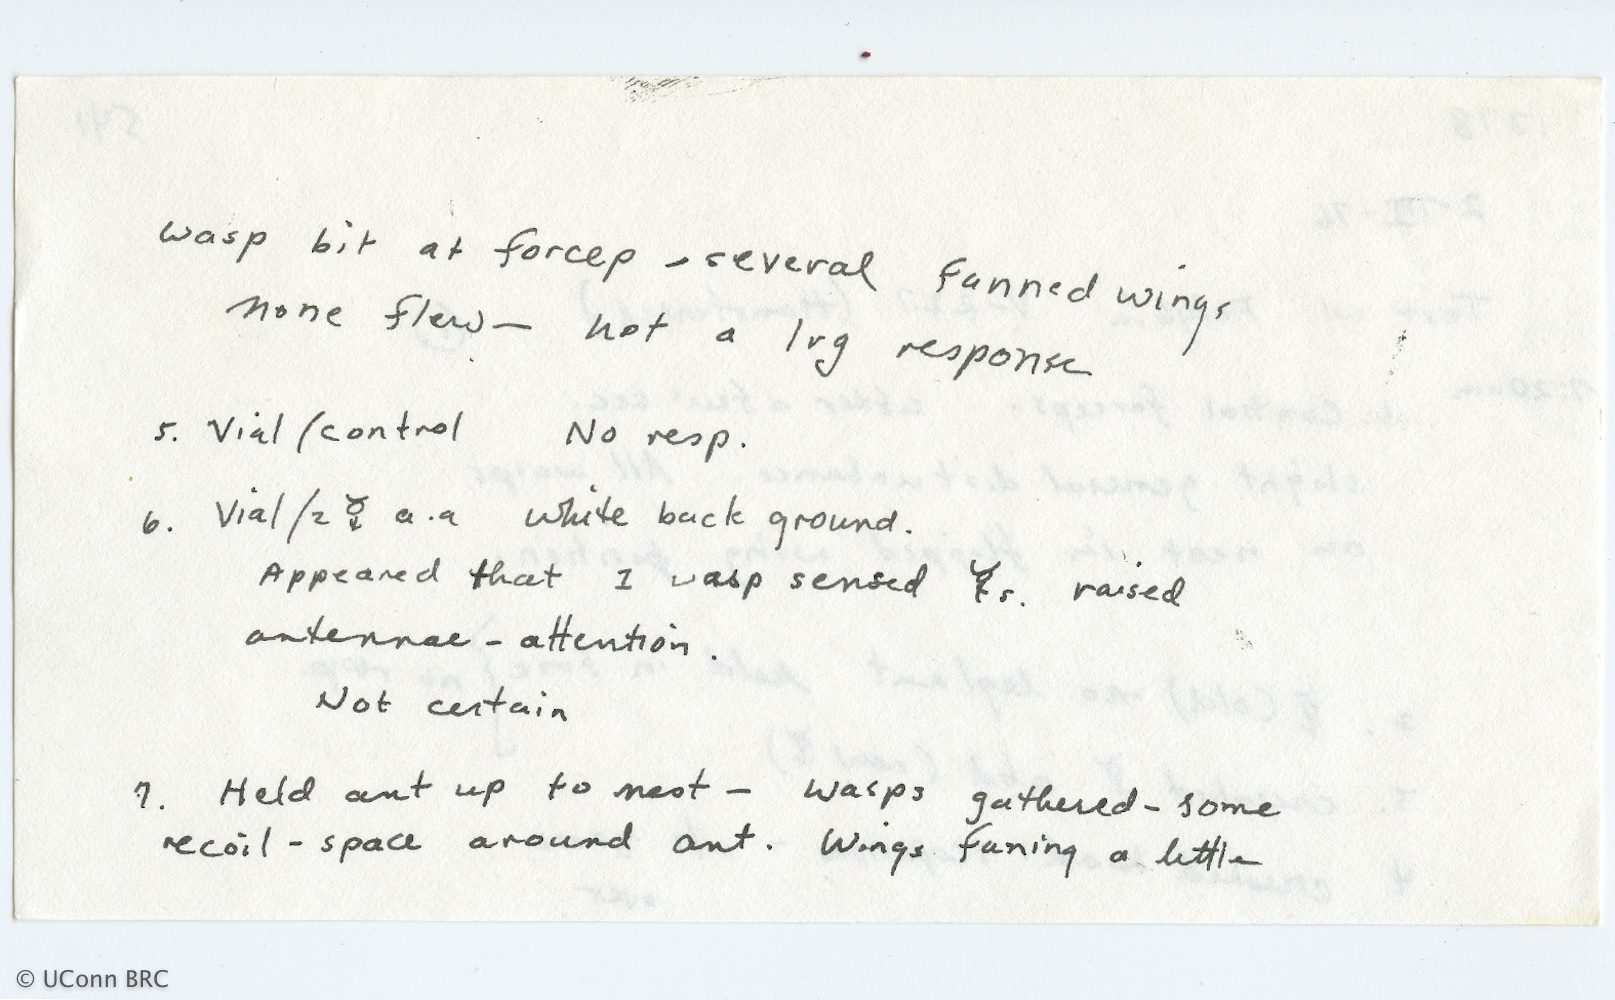 wasp bit at forcep - several fanned wings
none flew - not a lrg response
5. Vial/control No resp.
6. Vial/2 ☿ a.a white back ground.
Appeared that 1 wasp sensed ☿s. raised
antennae - attention.
Not certain
7. Held ant up to nest - wasps gathered - some
recoil - space around ant. Wings faning a little
© UConn BRC